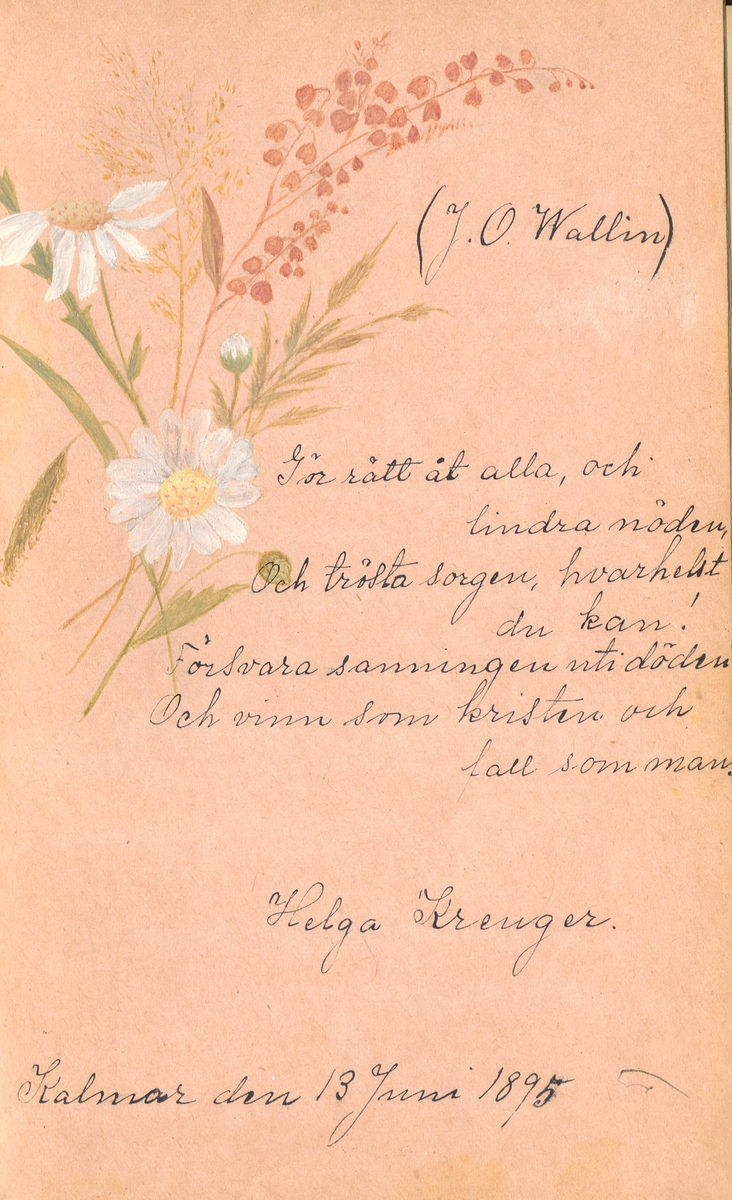 (J. O. Wallin)
Gör rätt åt alla, och
lindra nöden,
Och trösta sorgen, hvarhelst
du kan!
Försvara sanningen uti döden
Och vinn som kristen och
fall som man.
Helga Kreuger.
Kalmar den 13 Juni 1895